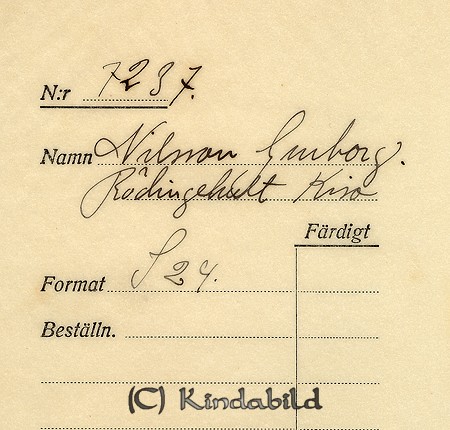 N:r 7237.
Namn Nilsson Gurborg.
Rödingehult Kisa
Färdigt
Format S 24.
Beställn.
(C) Kindabild